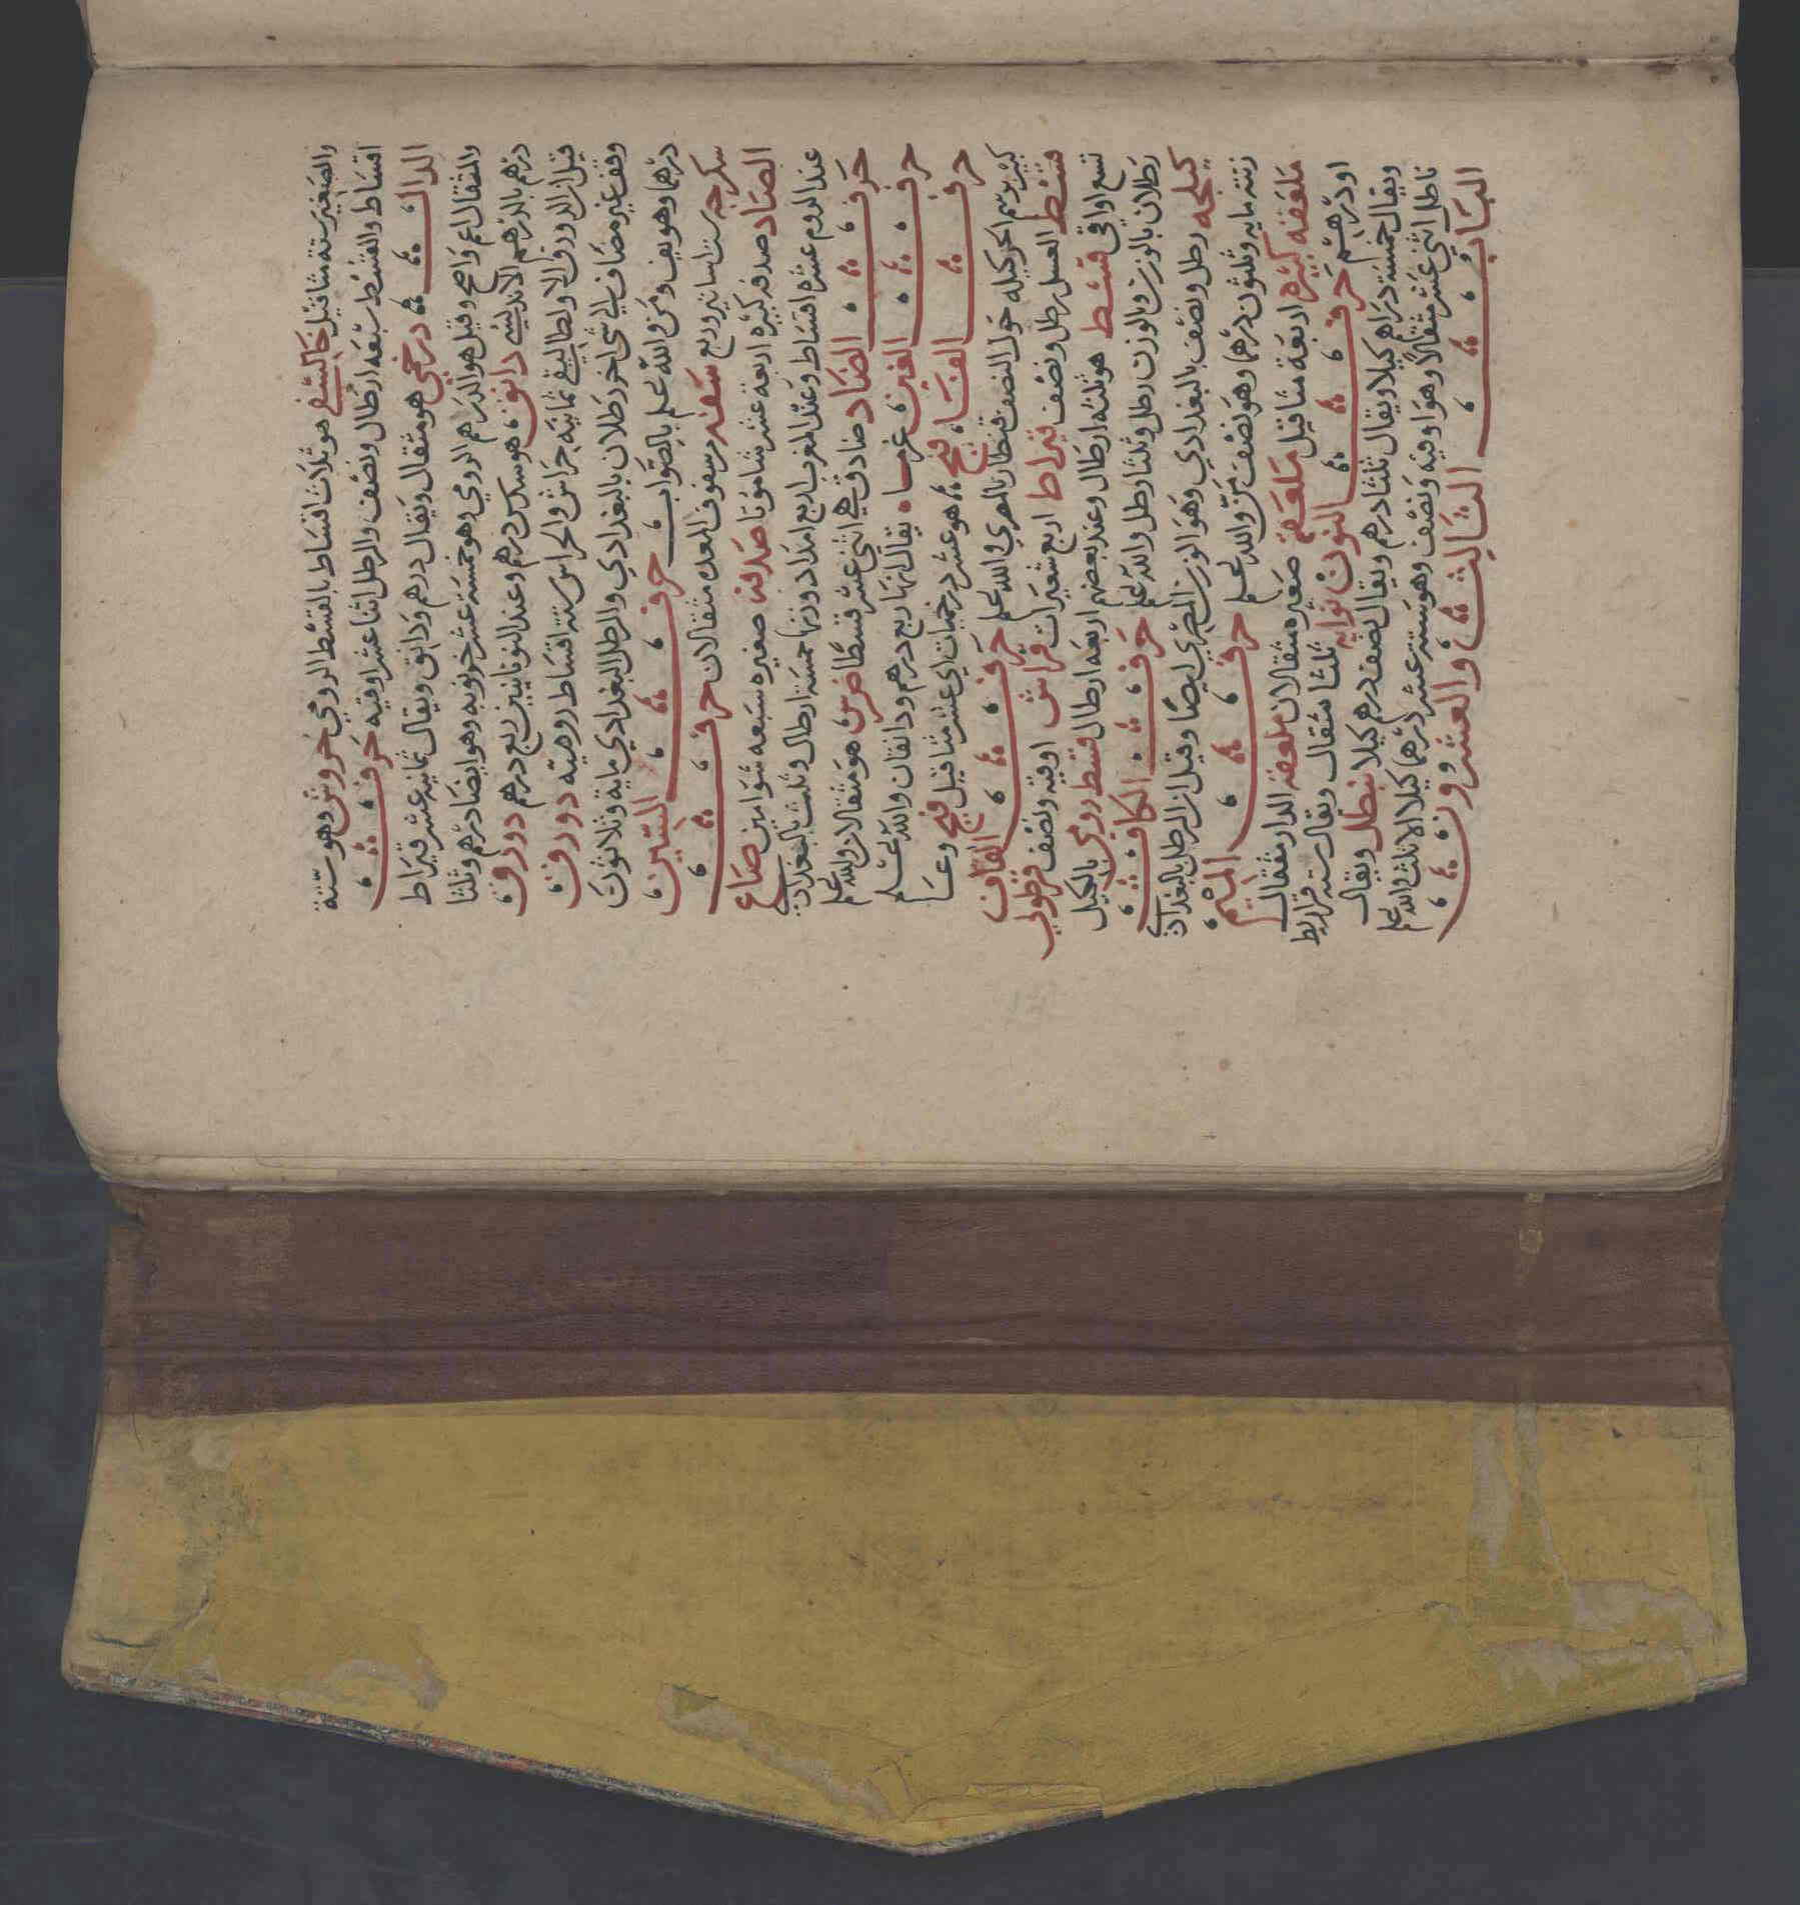 والصغير ستة مثاقيل جالسفى هو ثلاث اقساط بالقسط الرومي خروش وهو ستة
اقساط والقسط سبعه ارطال ونصف والرطل اثنا عشر اوقية حرف
الدال درخمي هو مثقال ويقال درهم ودانق ويقال ثمانية عشر قيراط
والمثقال اعم واصح وقيل هو الدرهم الرومي وهو خمسة عشر خرنوبه وهو ايضا درهم وثلثا
درهم بالدرهم الاندلسي دانق هو سدس درهم وعند اليونانيين ربع درهم دورق
قيل ان الدورق الاولطاليقي ثمانية جراش والجراس ستة اقساط رومية دورق
وقف غير مضاف الى شي اخر رطلان بالبغدادي والرطل البغدادي ماية وثلاثون
درهما وهو نيف ومن والله اعلم بالصواب حرف السين
سكرجه ست اساتير وربع سعفه مر سفوف المعده مثقالان حرف
الصاد صدفه كبيره اربعة عشر شامونا صدفه صغيره سبعه شوامين صاع
عند الروم عشرة اقساط وعند العرب اربع امداد وزنها خمسة ارطال وثلث بالبغدادي
حرف الضاد ضادق هي اثني عشر قسطا ضرس هو مثقالان والله اعلم
حرف الغين غرمساه يقال انها ربع درهم ودانقان والله اعلم
حرف الفاء فنج هو عشر درخميات اي عشر مثاقيل فنج وعسا
كبير يرسم اخر كيله حول النصف قنطار بالمصري والله اعلم حرف القاف
قسط العسل رطل ونصف قيراط اربع شعيرات قراش اوقيه ونصف قرطولي
تسع اواقي قسط هو ثلثه ارطال وعند بعضهم اربعه ارطال قسط رومي بالكيل
رطلان بالوزن وبالوزن رطل وثلثا رطل والله اعلم حرف الكاف
كيلجه رطل ونصف بالبغدادي وهو الوزن المصري ايضا وقيل ان الرطل بالبغدادي
زنته مايه وثلثون درهما وهو نصف من والله اعلم حرف الميم
ملعقه كبيره اربعة مثاقيل ملعقه صغيره مثقالان ملعقه الدار مثقال
او درهم حرف النون نواه ثلثا مثقال ويقال ستة قراريط
ويقال خمسة دراهم كيلا ويقال ثلثا درهم ويقال نصف درهم كيلا نيطل ويقال
ناطل اثني عشر مثقالا وهو اوقيه ونصف وهو ستة عشر درهما كيلا الا ثلث والله اعلم
الباب الثالث والعشرون